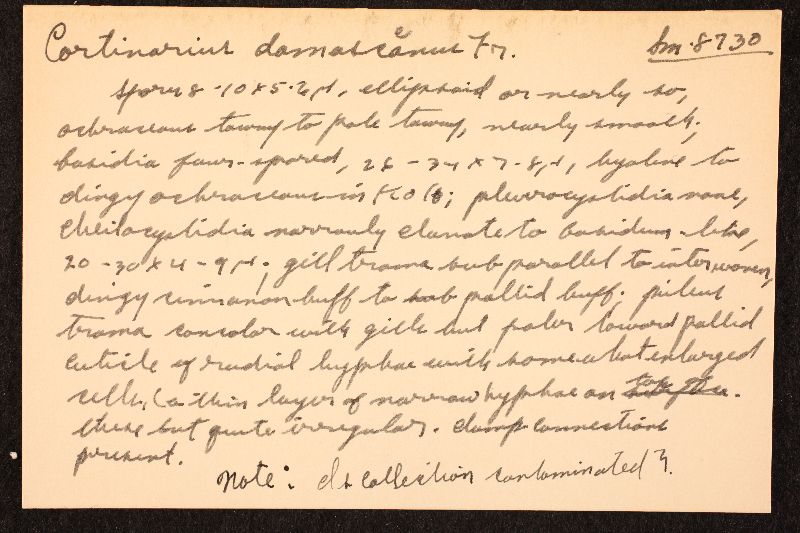 Cortinarius damascenus Fr. Sm. 8730
spores 8-10 x 5-6 µ, ellipsoid or nearly so,
ochraceous tawny to pale tawny, nearly smooth;
basidia four-spored, 28-34 x 7-8 µ, hyaline to
dingy ochraceous in KOH; pleurocystidia none,
cheilocystidia narrowly clavate to basidium-like,
20-30 x 4-9 µ; gill trama subparallel to interwoven,
dingy cinnamon buff to pallid buff; pileus
trama concolor with gills but paler toward pallid
cuticle of radial hyphae with somewhat enlarged
cells, (a thin layer of narrow hyphae on top of
these but quite irregular. Clamp connections
present.
Note: Is collection contaminated?